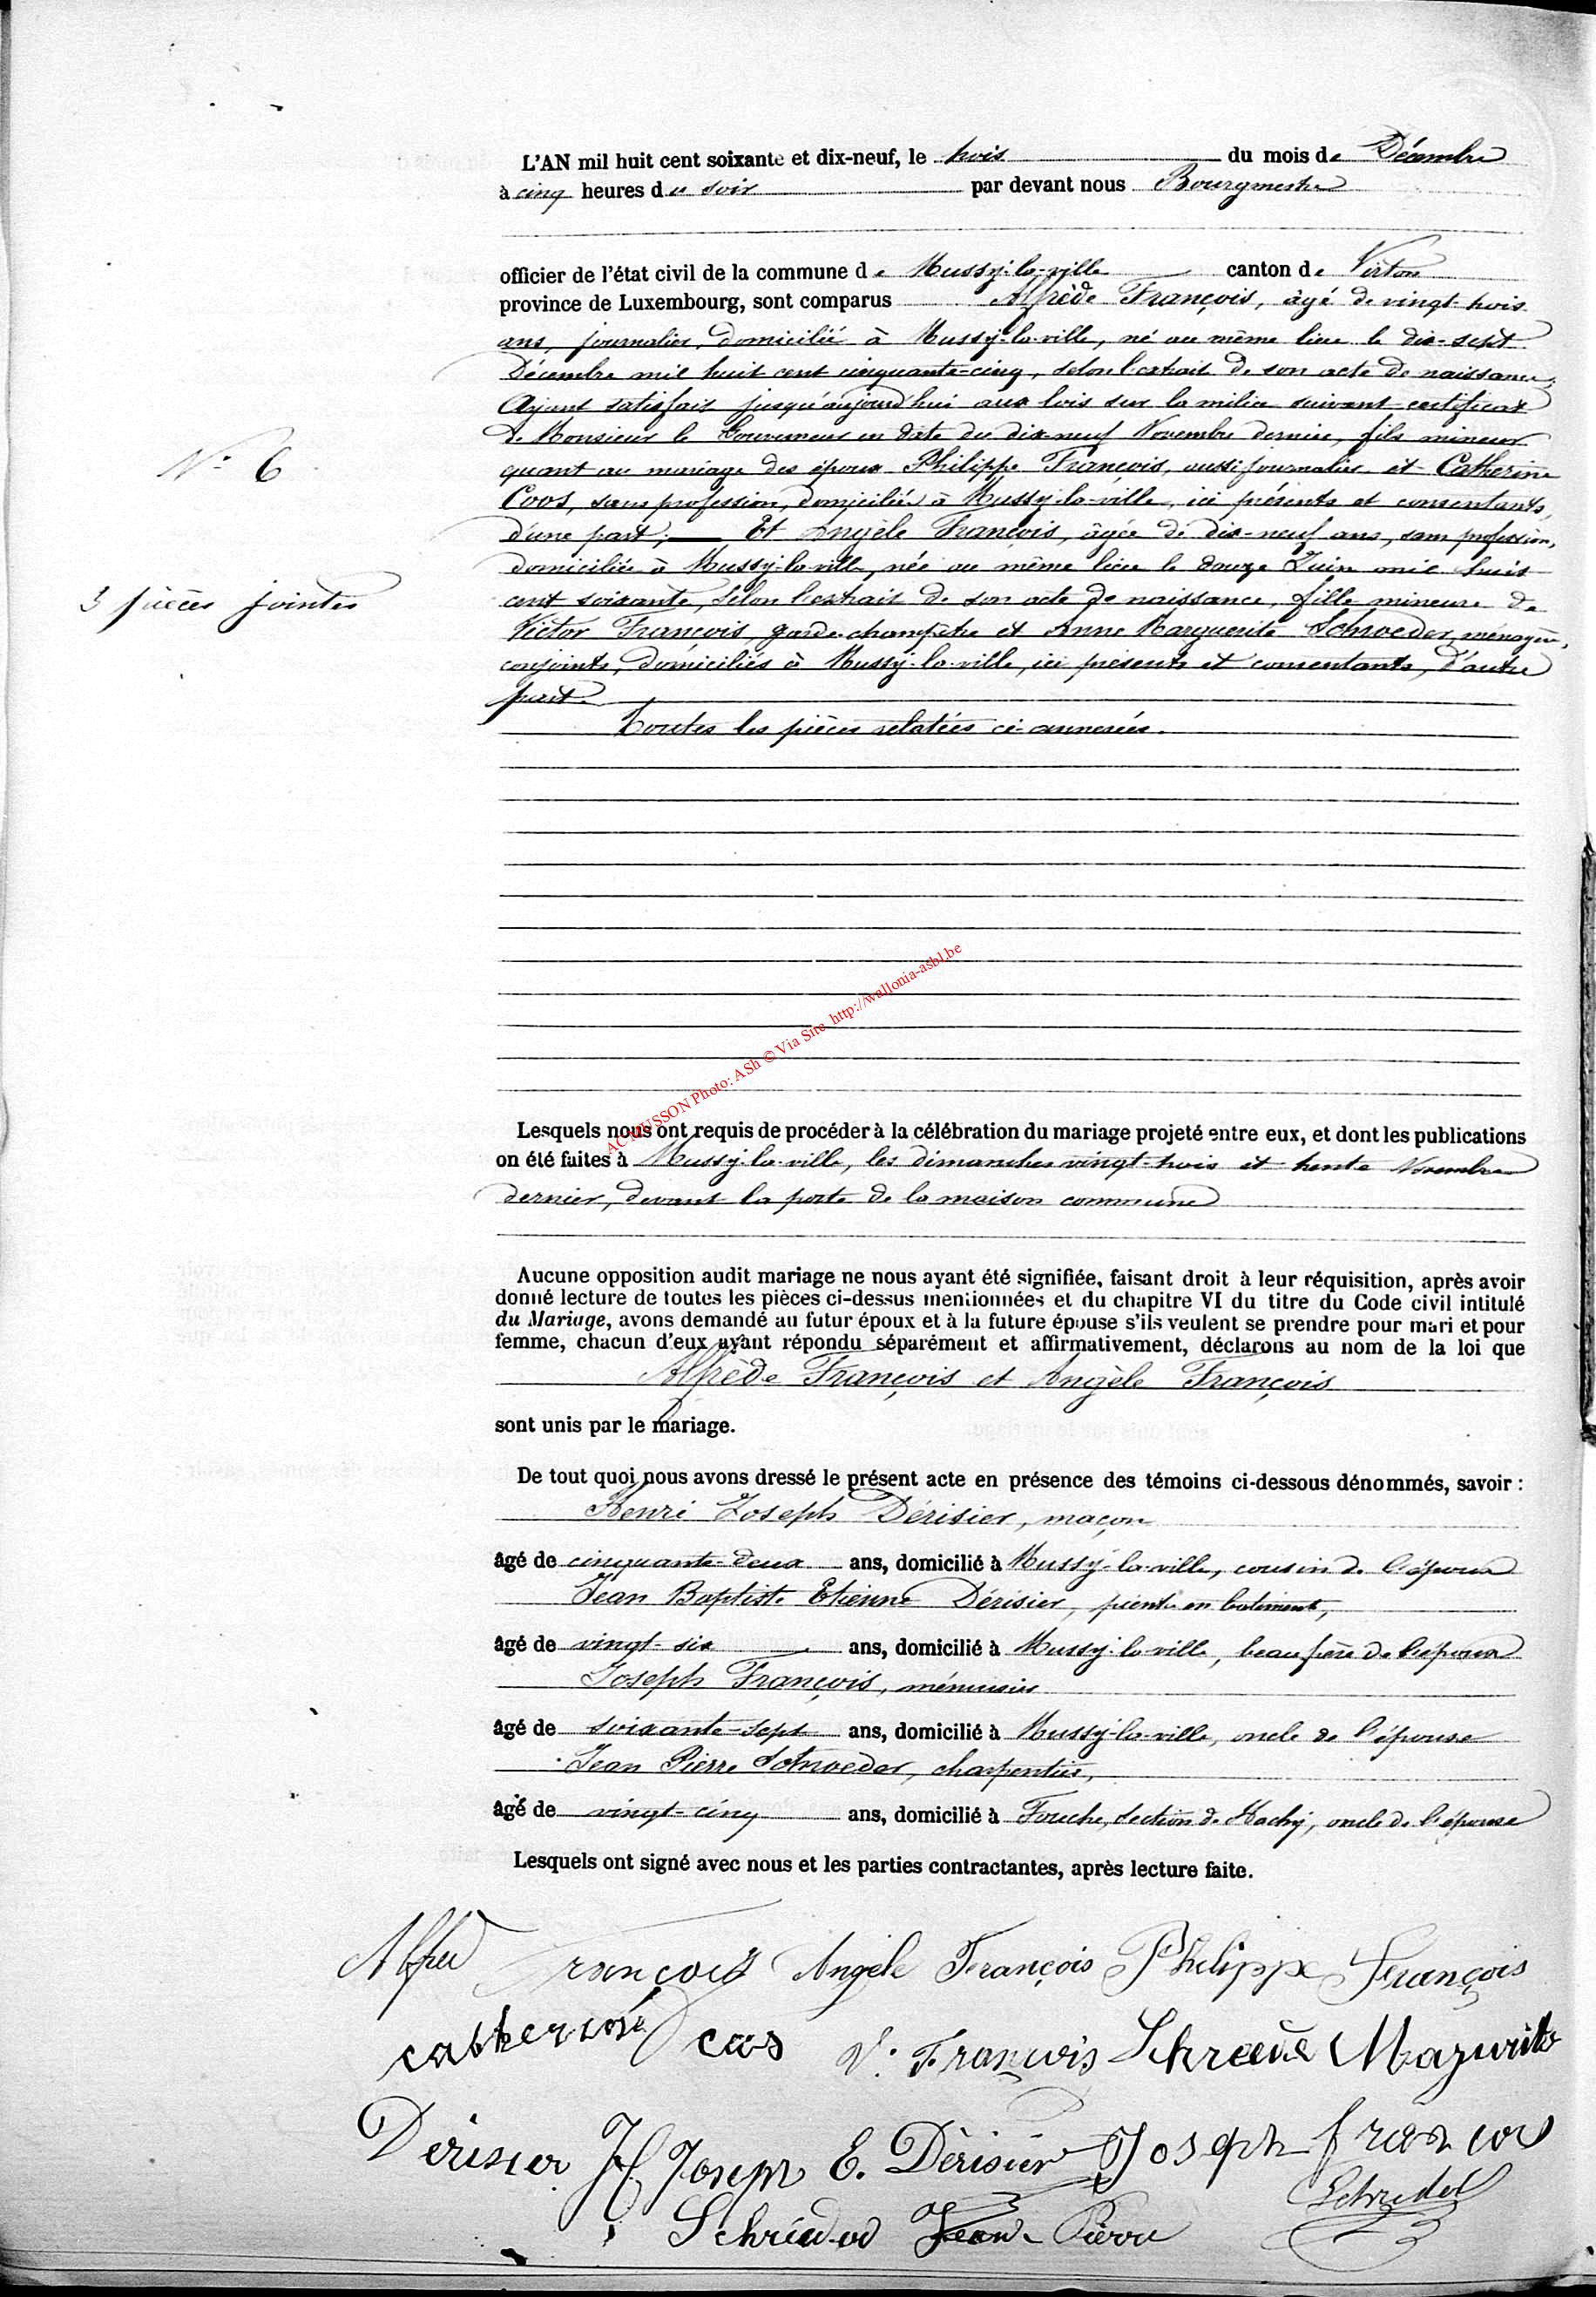 L'AN mil huit cent soixante et dix-neuf, le trois du mois de Décembre
à cinq heures du soir par devant nous Bourgmestre
officier de l'état civil de la commune de Mussy-la-ville canton de Virton
province de Luxembourg, sont comparus Alfrède François, âgé de vingt-trois
ans, journalier, domicilié à Mussy-la-ville, né au même lieu le dix-sept
Décembre mil huit cent cinquante-cinq, selon l'extrait de son acte de naissance,
Ayant satisfait jusqu'aujourd'hui aux lois sur la milice suivant certificat
de Monsieur le Gouverneur en date du dix-neuf Novembre dernier, fils mineur
N° 6
quant au mariage des époux Philippe François, aussi journalier et Catherine
Coos, sans profession, domiciliés à Mussy-la-ville, ici présents et consentants,
d'une part; Et Angèle François, âgée de dix-neuf ans, sans profession,
domiciliée à Mussy-la-ville, née au même lieu le douze Juin mil huit
3 pièces jointes
cent soixante, selon l'extrait de son acte de naissance, fille mineure de
Victor François, garde-champêtre et Anne Marguerite Schroeder, ménagère,
conjoints, domiciliés à Mussy-la-ville, ici présents et consentants, d'autre
part.
Toutes les pièces relatées ci-annexées.
AC MUSSON Photo: ASh © Via Site http://wallonia-asbl.be
Lesquels nous ont requis de procéder à la célébration du mariage projeté entre eux, et dont les publications
on été faites à Mussy-la-ville, les dimanches vingt-trois et trente Novembre
dernier, devant la porte de la maison commune
Aucune opposition audit mariage ne nous ayant été signifiée, faisant droit à leur réquisition, après avoir
donné lecture de toutes les pièces ci-dessus mentionnées et du chapitre VI du titre du Code civil intitulé
du Mariage, avons demandé au futur époux et à la future épouse s'ils veulent se prendre pour mari et pour
femme, chacun d'eux ayant répondu séparément et affirmativement, déclarons au nom de la loi que
Alfrède François et Angèle François
sont unis par le mariage.
De tout quoi nous avons dressé le présent acte en présence des témoins ci-dessous dénommés, savoir :
Henri Joseph Dérisier, maçon
âgé de cinquante-deux ans, domicilié à Mussy-la-ville, cousin de l'époux
Jean Baptiste Etienne Dérisier, peintre en batiment,
âgé de vingt-six ans, domicilié à Mussy-la-ville, beau frère de l'époux
Joseph François, ménuisier
âgé de soixante-sept ans, domicilié à Mussy-la-ville, oncle de l'épouse
Jean Pierre Schroeder, charpentier,
âgé de vingt-cinq ans, domicilié à Fouche, section de Hachy, oncle de l'épouse
Lesquels ont signé avec nous et les parties contractantes, après lecture faite.
Alfred François Angèle François Philippe François
catherine cos V. François Schroeder Margurite
Dérisier H Joseph E. Dérisier Joseph françois
Schrieder Jean-Pierre